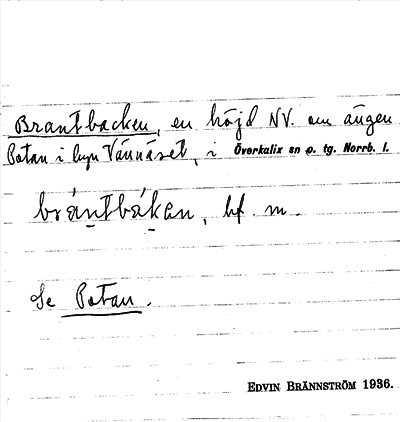 Brantbacken, en höjd NV. om ängen
Potan i byn Vännäset, i Överkalix sn o. tg. Norrb. l.
brántbákan, bf. m.
Se Potan.
EDVIN BRÄNNSTRÖM 1936.